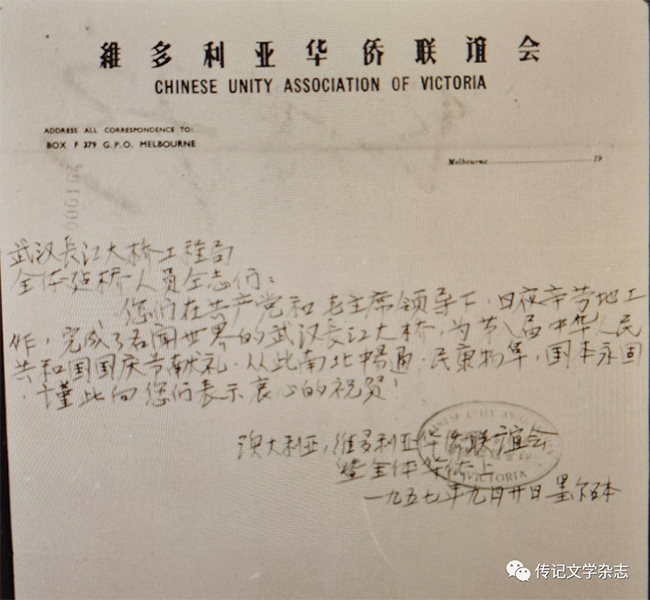 維多利亚华侨联谊会
CHINESE UNITY ASSOCIATION OF VICTORIA
ADDRESS ALL CORRESPONDENCE TO:
BOX F 379 G.P.O. MELBOURNE
Melbourne 19
武汉長江大桥工程局
全体建桥人员仝志们:
您们在共产党和毛主席领导下,日夜辛劳地工
作,完成了名闻世界的武汉长江大桥,为第八届中华人民
共和国国庆节献礼.从此南北暢通.民康物阜,国本永固
.谨此向您们表示衷心的祝贺!
澳大利亚,维多利亚华侨联谊会
全体
VICTORIA
一九五七年九月廿日墨尔本
传记文学杂志